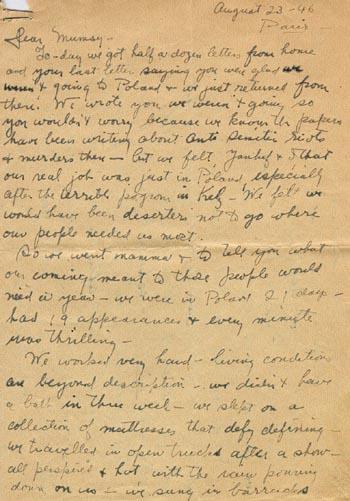 August 23-46
Paris
Dear Mumsy-
To-day we got half a dozen letters from home
and your last letter saying you were glad we
weren't going to Poland & we just returned from
there. We wrote you we weren't going so
you wouldn't worry because we know the papers
have been writing about anti semitic riots
& murders there - but we felt, Yankel & I that
our real job was just in Poland especially
after the terrible pogrom in - We felt we
would have been deserters not to go where
our people needed us most.
So we went mamma & to tell you what
our coming meant to those people would
need a year - we were in Poland 21 days -
had 19 appearances & every minute
was thrilling -
We worked very hard - living conditions
are beyond description - we didn't have
a bath in three weeks - we slept on a
collection of mattresses that defy defining -
we travelled in open trucks after a show -
all perspired & hot with the rain pouring
down on us - we sung in barracks